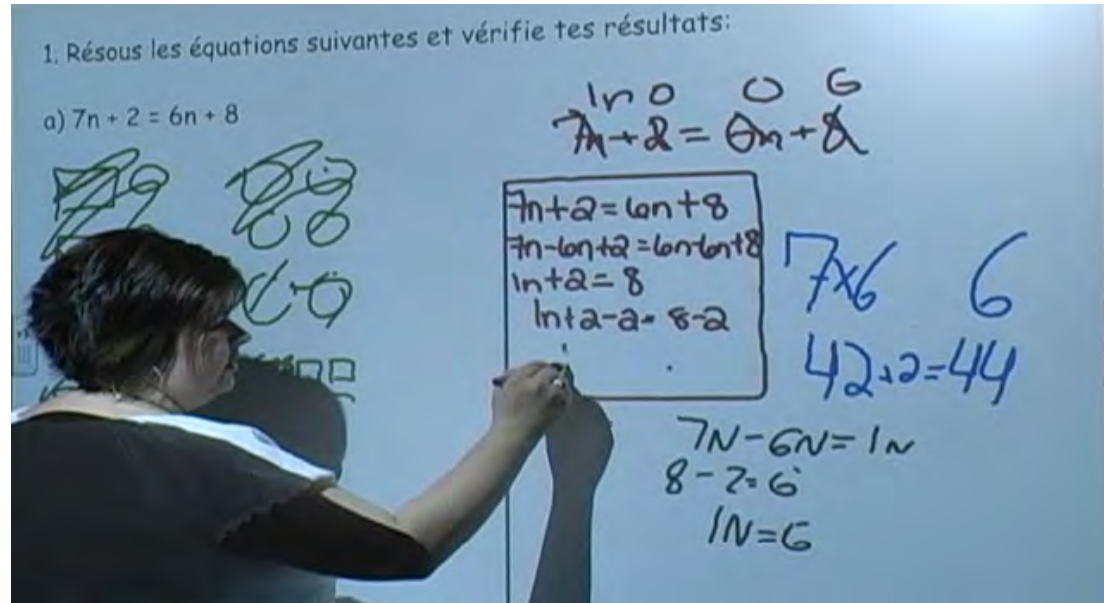 1. Résous les équations suivantes et vérifie tes résultats:
a) 7n + 2 = 6n + 8
1n 0 0 6
7n + 2 = 6n + 8
7n+2=6n+8
7n-6n+2=6n-6n+8
1n+2=8
1n+2-2= 8-2
7x6 6
42+2=44
7N-6N=1N
8-2=6
1N=6